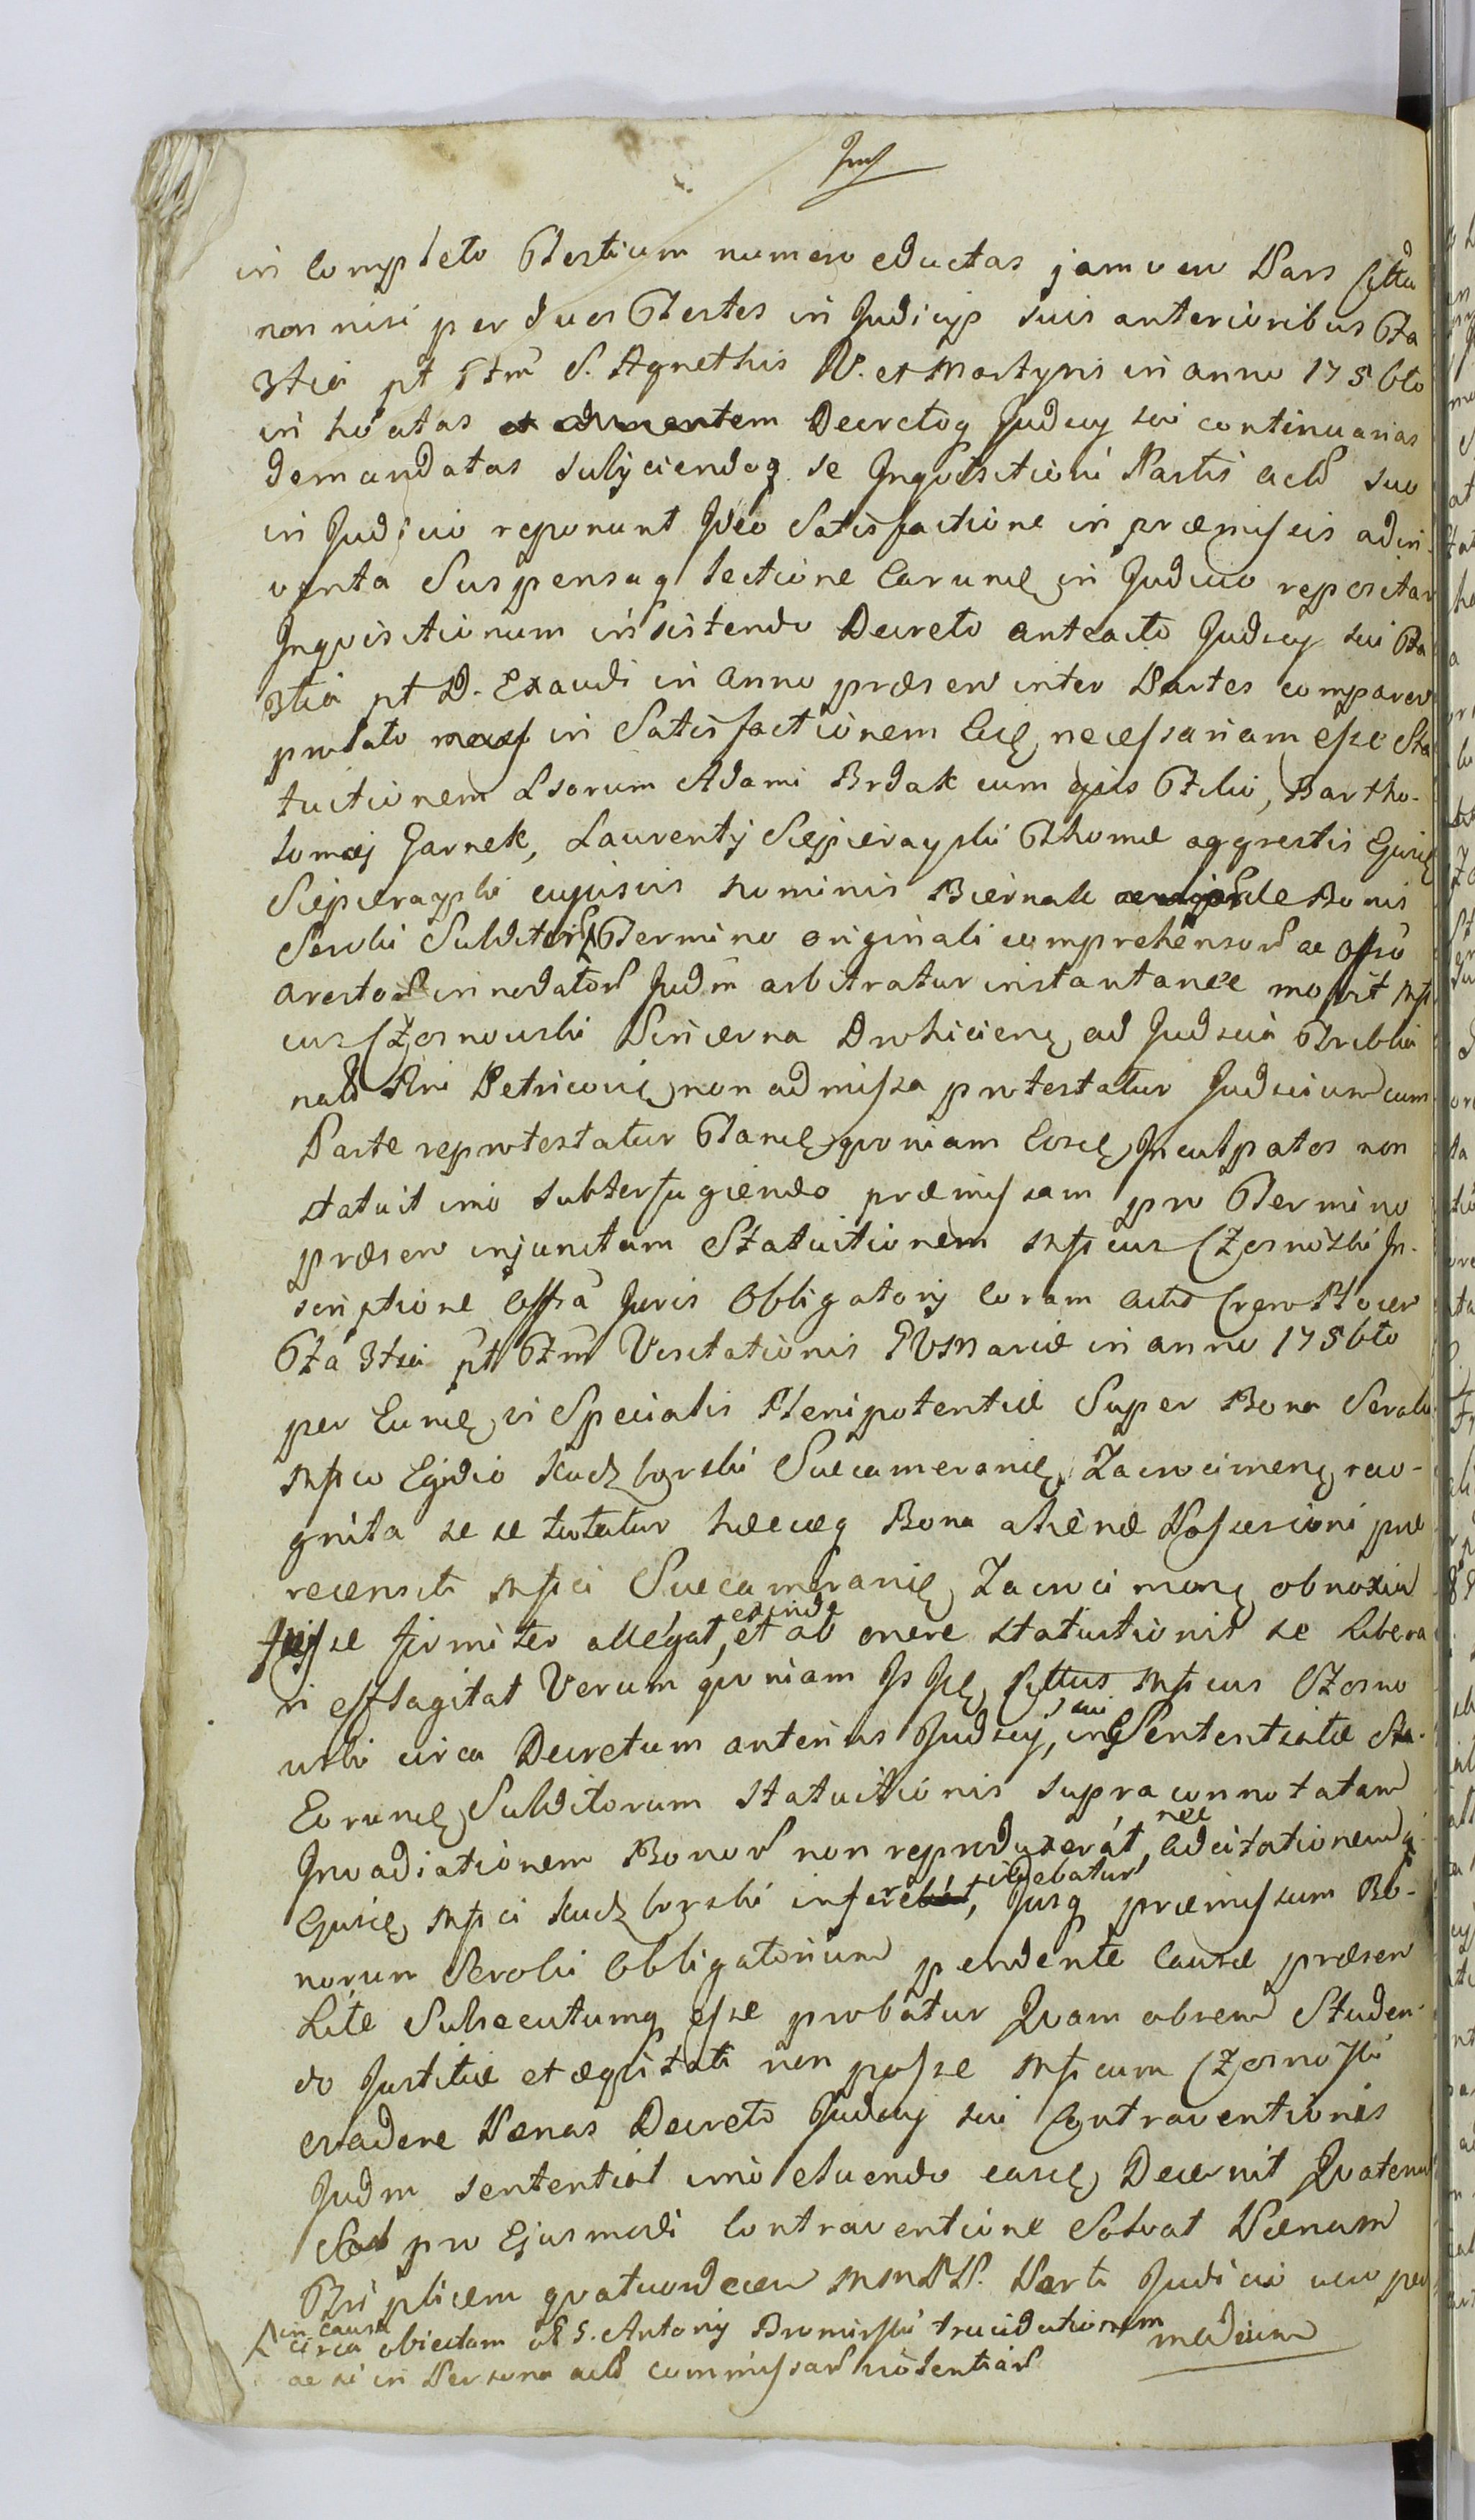 in completo Testium numero eductas jam vero Pars Citta
non nisi per duos Testes in Judicijs suis anterioribus Fa
3tia pt Ftm S. Agnethis V. et Martyris in anno 1756to
in hoatas et Decretoq Judicij sui continuarias
demandatas subijciendoq se Inqvisitioni Partis actt suo
in Judicio reponunt Ideo Satisfactione in præmissis adin-
venta Suspensaq lectione Earumę in Judicio repositar
Inqvisitionum insistendo Decreto anteacto Judicij sui Fa
3tia pt D. Exaudi in Anno præsen inter Partes comparen
prolato in Satisfactionem Eię necessariam esse Sta
tuitionem Lsorum Adami Brdak cum ejus Filio, Bartho-
lomæj Garnek, Laurentij Sciepierayski Thomæ aggrestis Ejusę
Sciepierayski cujusvis nominis Biernak de Bonis
Seroki Subditor Termino originali comprehensor ac Offo
arestor innodator Judm arbitratur instantanee movit Mf
cus Czosnowski Pincerna Drohicienę ad Judicia Tribbu
nalis Rni Petricovię non admissa protestatur Judicium cum
Parte reprotestatur Tamę qvoniam Eosę Inculpatos non
statuit imo subterfugiendo præmissam pro Termino
præsen injunctam Statuitionem Mfcus Czosnowski In-
scriptione Offa Juris Obligatorij coram Actis Cren Plocen
Fa 3tia pt Ftm Visitationis BVMariæ in anno 1756to
per Eumę vi Specialis Plenipotentiæ Super Bona Seroki
Mfco Egidio Kuczborski Succamerarię Zacrocimenę reco-
gnita se se tutatur hæecæq Bona alienæ Possessioni præ
recensiti Mfci Succamerarię Zacrocimenę obnoxia
fuisse firmiter allegat, exinde et ab onere statuitionis se libera
ri efflagitat Verum qvoniam Is Ję Cittus Mfcus Czosno
wski circa Decretum anterius Judicij, sui in Sententiatæ Sta-
Eorumę Subditorum statuitionis supra connotatam
Invadiationem Bonor non reproduxerat, nec adcitationem
Ejusę Mfci Kuczborski inferre, videbatur Jusq præmissum Bo-
norum Seroki Obligatorium pendente Causæ præsen
Lite Subsecutumq esse probatur Qvam obrem Studen-
do Justitiæ et æqvitati non posse Mfcum Czosnowski
evadere Pænas Decreto Judicij sui Contraventionis
Judm sententiat imo eluendo easę Decernit Qvatenus
pro Ejusmodi Contraventione Solvat Pænam
Triplicem qvatuordecem MMPP. Parti Judicio vero per
in causa
circa obiectam ol S. Antonij Bromirski trucidationem
ac si in Persona actt commissar violentiar
medium